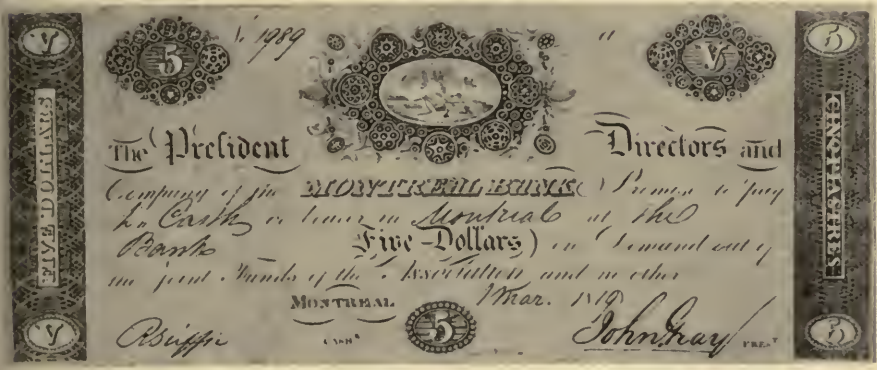 V
5
№ 1989
"
V
5
FIVE DOLLARS
CINQ PIASTRES
The President Directors and
Company of the MONTREAL BANK Promise to pay
to Cash or bearer in Montreal at the
Bank Five Dollars) on Demand out of
the joint Funds of the Association and no other
MONTREAL 1 Mar. 1819
CASHR
5
John Gray PREST
V
5